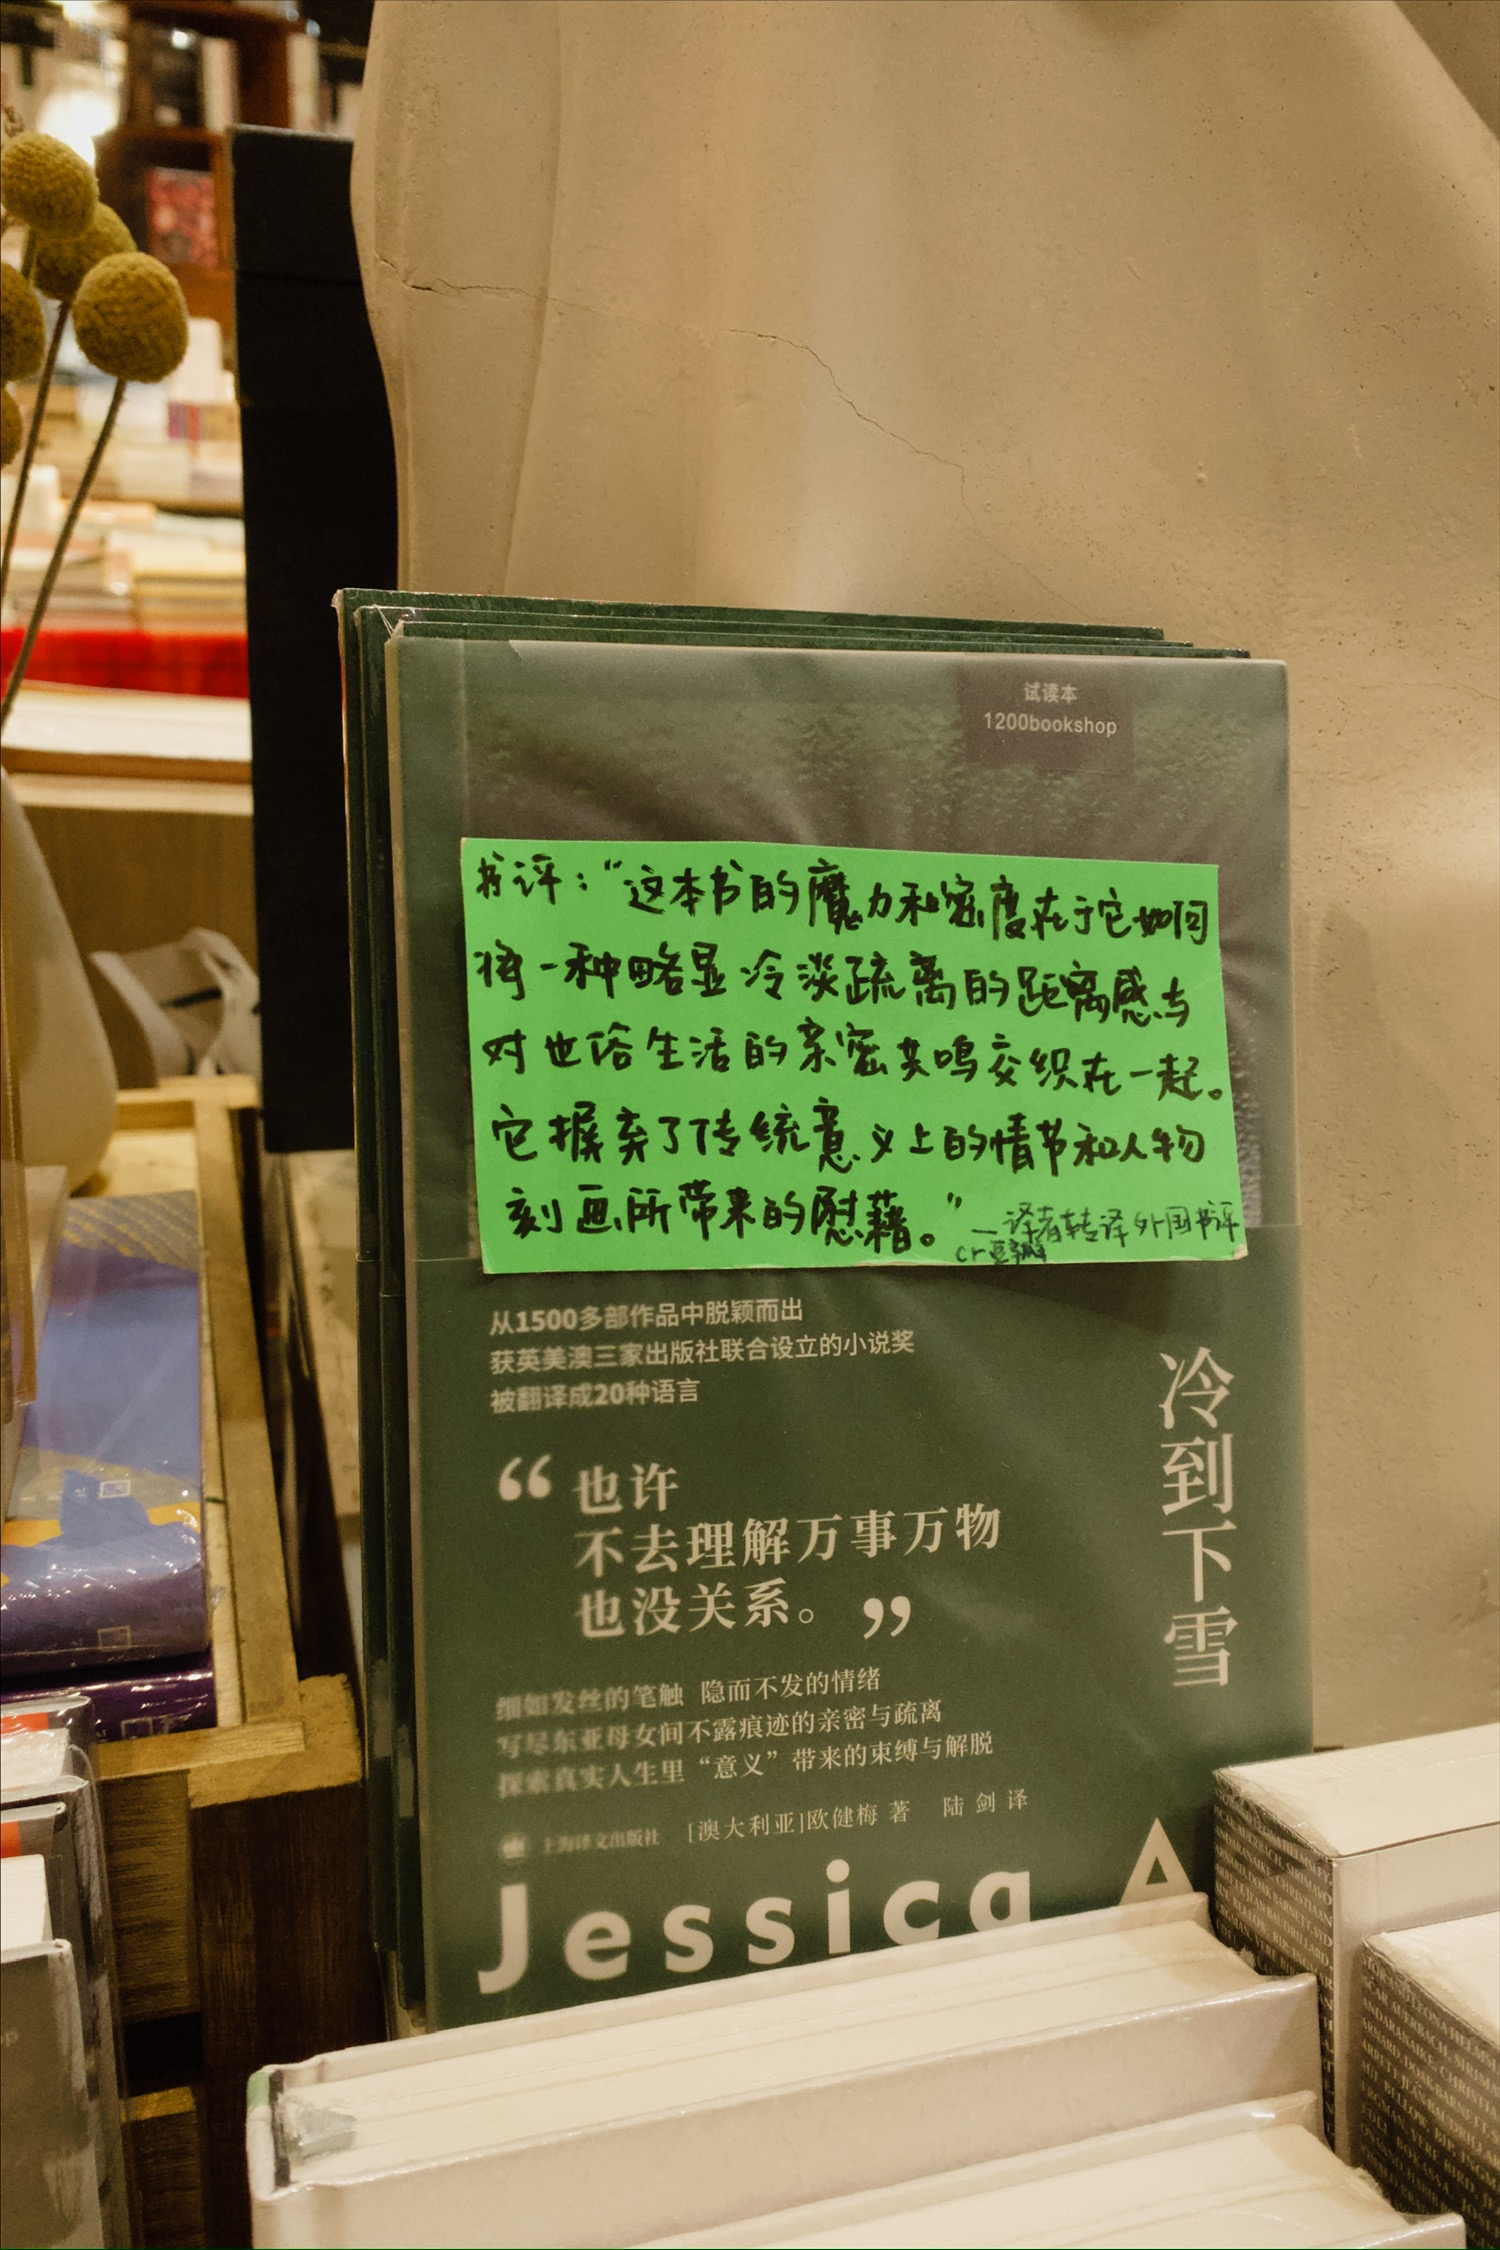 试读本
1200bookshop
书评：“这本书的魔力和密度在于它如何
将一种略显冷淡疏离的距离感与
对世俗生活的亲密共鸣交织在一起。
它摒弃了传统意义上的情节和人物
刻画所带来的慰藉。”
—译者转译外国书评
cr豆瓣
从1500多部作品中脱颖而出
获英美澳三家出版社联合设立的小说奖
被翻译成20种语言
“也许
不去理解万事万物
也没关系。”
冷到下雪
细如发丝的笔触 隐而不发的情绪
写尽东亚母女间不露痕迹的亲密与疏离
探索真实人生里“意义”带来的束缚与解脱
[澳大利亚]欧健梅 著 陆剑 译
上海译文出版社
Jessica A